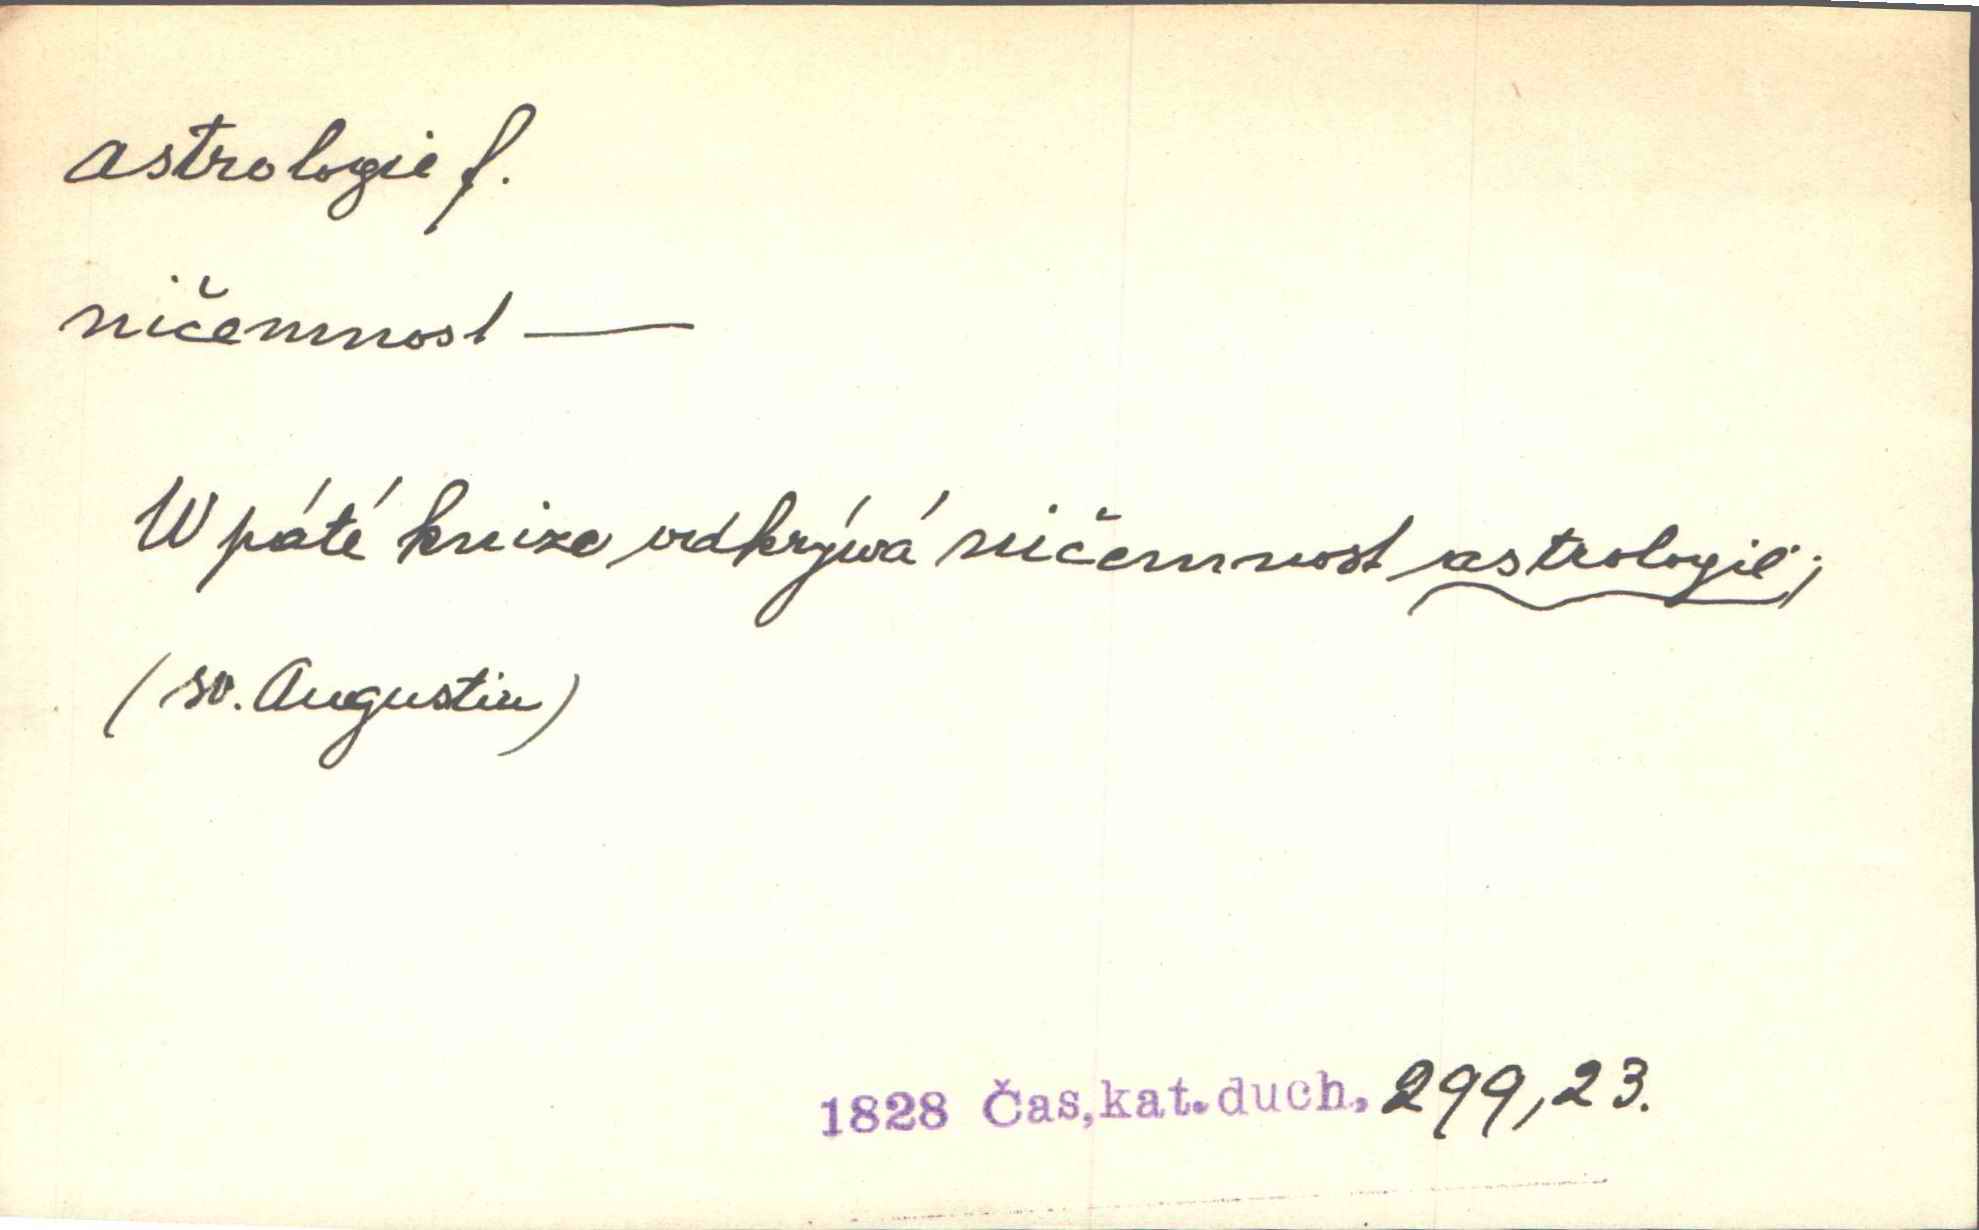 astrologie f.
ničemnost —
W páté knize odkrývá ničemnost astrologie;
(sv. Augustin)
1828 Čas,kat.duch, 299,23.